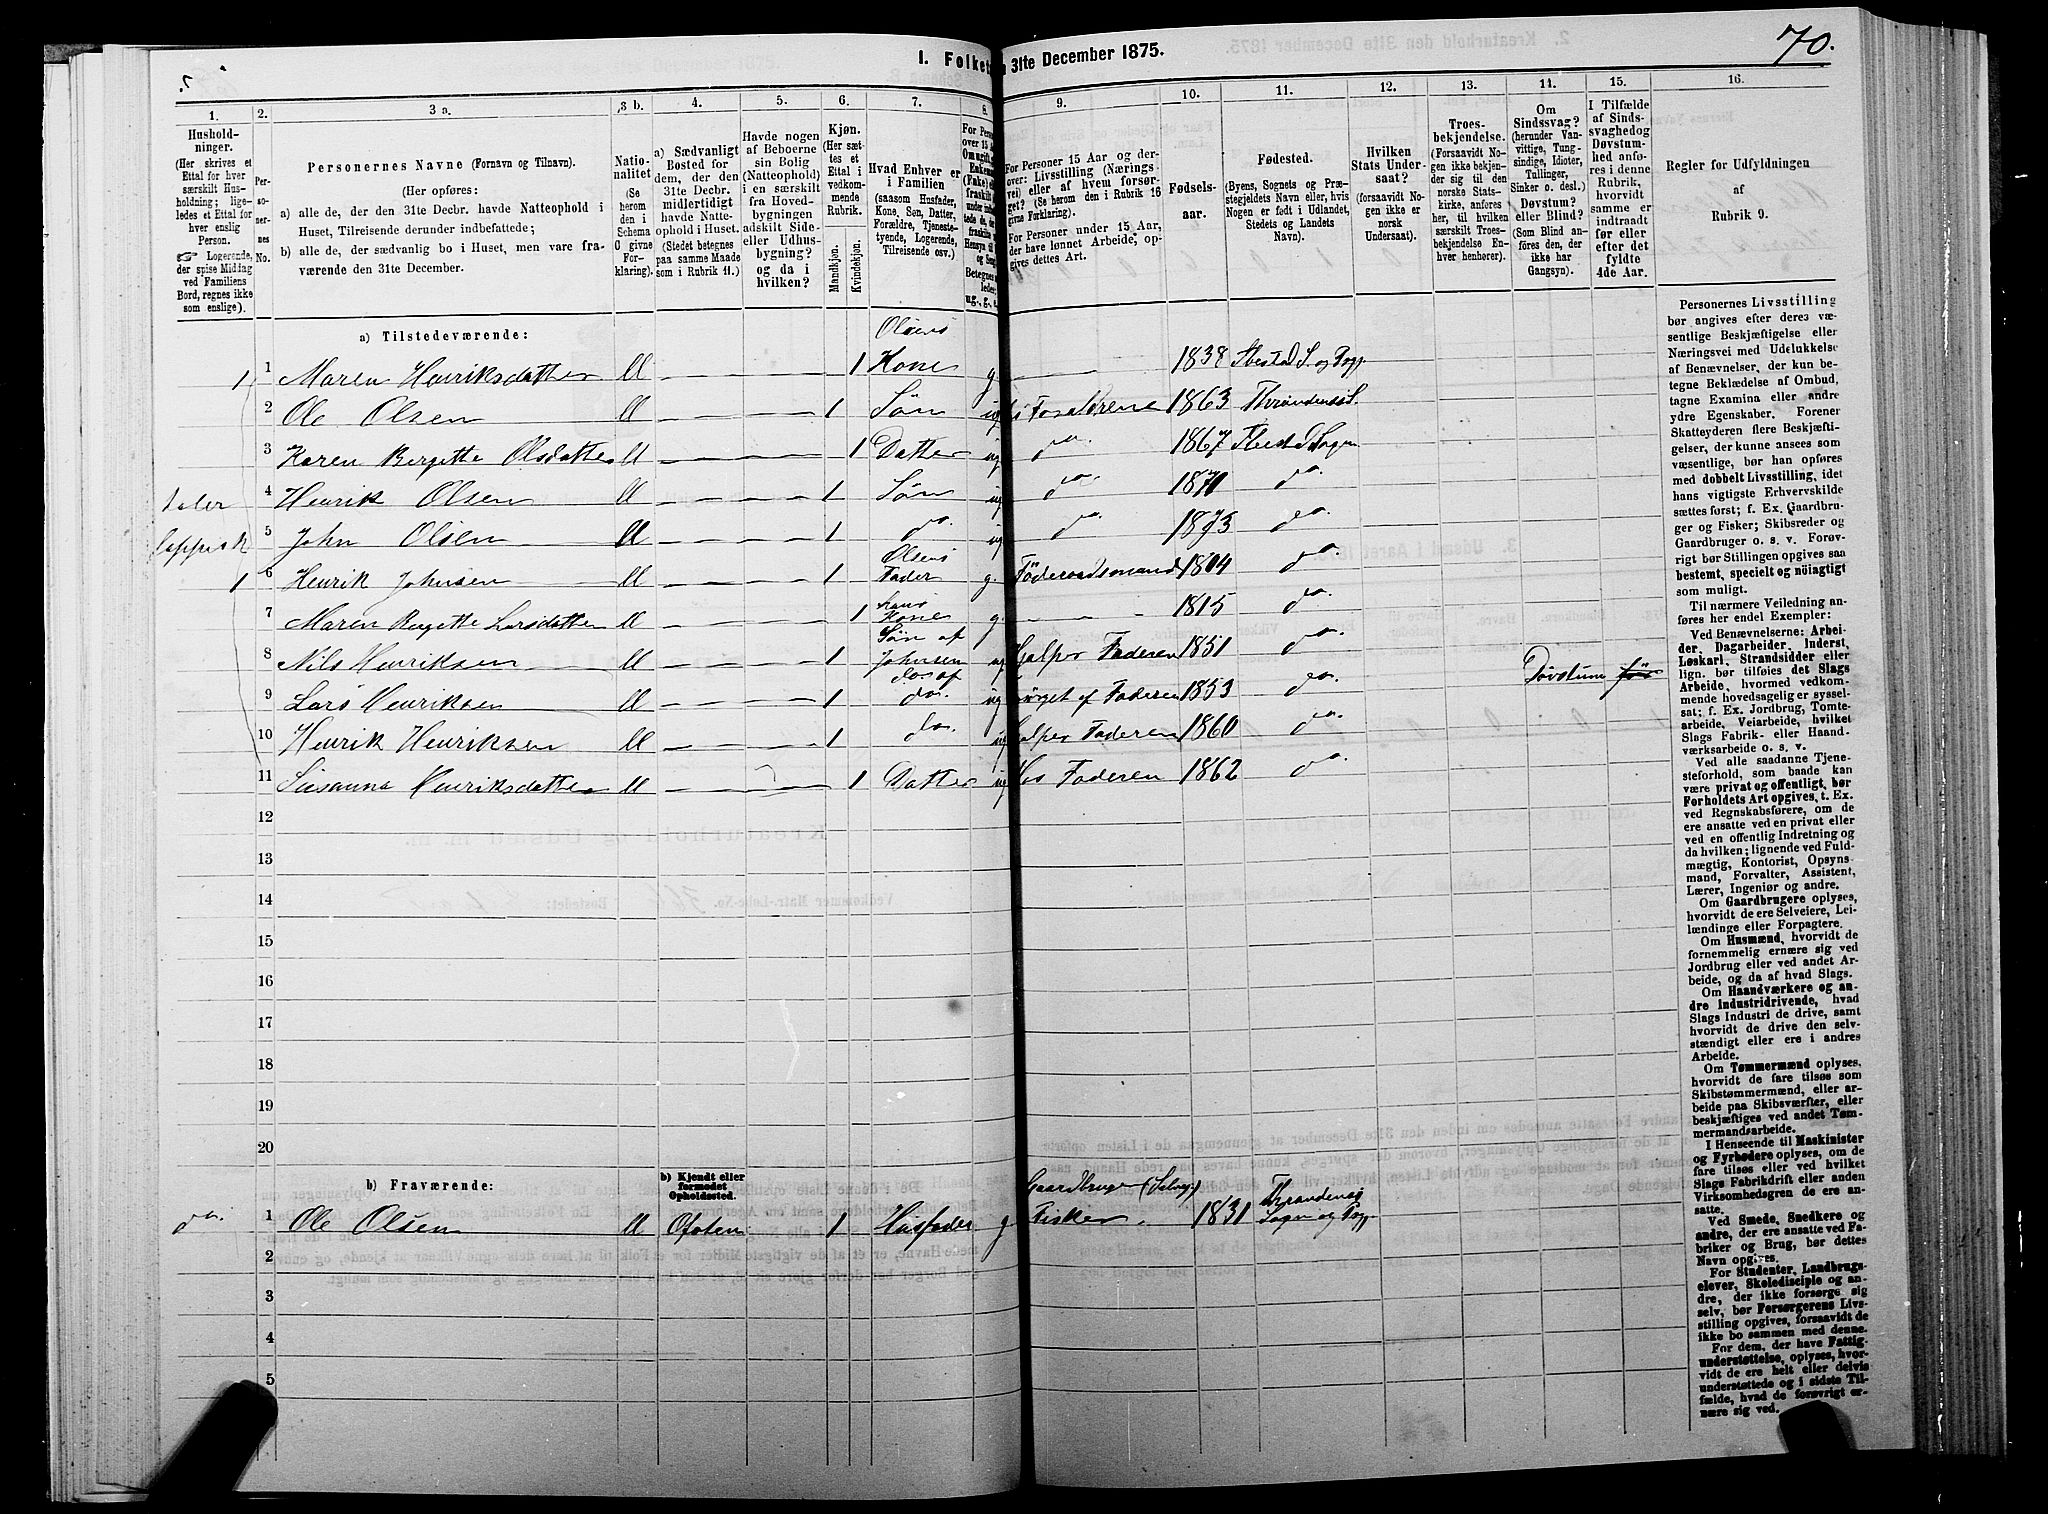 70.
1. Folket
31te December 1875.
1.
2.
3 a.
3 b.
4.
5.
6.
7.
8.
9.
10.
11.
12.
13.
14.
15.
16.
Hushold-
ninger.
(Her skrives et
Ettal for hver
særskilt Hus-
holdning; lige-
ledes et Ettal for
hver enslig
Person.
☞ Logerende,
der spise Middag
ved Familiens
Bord, regnes ikke
som enslige).
Per-
so-
ner-
nes
No.
Personernes Navne (Fornavn og Tilnavn).
(Her opføres:
a) alle de, der den 31te Decbr. havde Natteophold i
Huset, Tilreisende derunder indbefattede;
b) alle de, der sædvanlig bo i Huset, men vare fra-
værende den 31te December.)
Natio-
nalitet
(Se
herom
den i
Schema
C givne
For-
klaring).
a) Sædvanligt
Bosted for
dem, der den
31te Decbr.
midlertidigt
havde Natte-
ophold i Huset.
(Stedet betegnes
paa samme Maade
som i Rubrik 11.)
Havde nogen
af Beboerne
sin Bolig
(Natteophold)
i en særskilt
fra Hoved-
bygningen
adskilt Side-
eller Udhus-
bygning?
og da i
hvilken?
Kjøn.
(Her sæt-
tes et
Ettal i
vedkom-
mende
Rubrik.
Mandkjøn.
Kvindekjøn.
Hvad Enhver er
i Familien
(saasom Husfader,
Kone, Søn, Datter,
Forældre, Tjeneste-
tyende, Logerende,
Tilreisende osv.)
For Personer 15 Aar og der-
over: Livsstilling (Nærings-
vei) eller af hvem forsør-
get? (Se herom den i Rubrik 16
givne Forklaring).
For Personer under 15 Aar,
der have lønnet Arbeide, op-
gives dettes Art.
Fødsels-
aar.
Fødested.
(Byens, Sognets og Præ-
stegjeldets Navn, eller, hvis
Nogen er født i Udlandet,
Stedets og Landets
Navn).
Hvilken
Stats Under-
saat?
(forsaavidt No-
gen ikke er
norsk
Undersaat).
Troes-
bekjendelse.
(Forsaavidt No-
gen ikke bekjen-
der sig til den
norske Stats-
kirke, anføres
her, til hvilken
særskilt Troes-
bekjendelse En-
hver henhører).
Om
Sindssvag?
(herunder Van-
vittige, Tung-
sindige, Idioter,
Tullinger,
Sinker o. desl.)
Døvstum?
eller Blind?
(Som Blind an-
føres den, der
ikke har
Gangsyn).
I Tilfælde
af Sinds-
svaghed og
Døvstum-
hed anfø-
res i denne
Rubrik,
hvorvidt
samme er
indtraadt
før eller
efter det
fyldte
4de Aar.
Regler for Udfyldningen
af
Rubrik 9.
a) Tilstedeværende:
1 1 Maren Henriksdatter 1 Olsens Kone g. 1838
2 Ole Olsen 1 Søn ug 1863
3 Karen Bergitte Olsdatter 1 Datter ug do. 1867
4 Henrik Olsen 1 Søn ug do. 1871 do.
taler
5 John Olsen 1 do. ug do. 1873 do.
lappisk
1 6 Henrik Johnsen 1 Olsens Fader g. Föderaadsmand 1804 do.
7 Maren Bergitte Larsdatter 1 hans Kone g. 1815 do.
8 Nils Henriksen 1 Søn af Johnsen ug Hjelper Faderen 1851 do.
9 Lars Henriksen 1 do. ug af Faderen 1853 do. Døvstum før
10 Henrik Henriksen 1 do. ug Hjelper Faderen 1860 do.
11 Susanna Henriksdatter 1 Datter ug Hos Faderen 1862 do.
12
13
14
15
16
17
18
19
20
b) Fraværende:
b) Kjendt eller
formodet
Opholdssted.
do. 1 Ole Olsen Ofoten 1 Husfader g Gaardbruger (Selvej.) Fisker. 1831 Throndenæs Sogn og Prgj.
2
3
4
5
Personernes Livsstilling
bør angives efter deres væ-
sentlige Beskjæftigelse eller
Næringsvei med Udelukkelse
af Benævnelser, der kun be-
tegne Beklædelse af Ombud,
tagne Examina eller andre
ydre Egenskaber. Forener
Skatteyderen flere Beskjæfti-
gelser, der kunne ansees som
væsentlige, bør han opføres
med dobbelt Livsstilling, idet
hans vigtigste Erhvervskilde
sættes først; f. Ex. Gaardbru-
ger og Fisker; Skibsreder og
Gaardbruger o. s. v. Forøv-
rigt bør Stillingen opgives saa
bestemt, specielt og nöiagtigt
som muligt.
Til nærmere Veiledning an-
føres her endel Exempler:
Ved Benævnelserne: Arbei-
der, Dagarbeider, Inderst,
Løskarl, Strandsidder eller
lign. bør tilføies det Slags
Arbeide, hvormed vedkom-
mende hovedsagelig er syssel-
sat; f. Ex. Jordbrug, Tomte-
arbeide, Veiarbeide, hvilket
Slags Fabrik- eller Haand-
værksarbeide o. s. v.
Ved alle saadanne Tjene-
steforhold, som baade kan
være privat og offentligt, bør
Forholdets Art opgives, t. Ex.
ved Regnskabsførere, om de
ere ansatte ved en privat eller
ved en offentlig Indretning og
da hvilken; lignende ved Fuld-
mægtig, Kontorist, Opsyns-
mand, Forvalter, Assistent,
Lærer, Ingeniør og andre.
Om Gaardbrugere oplyses,
hvorvidt de ere Selveiere, Lei-
lændinge eller Forpagtere.
Om Husmænd, hvorvidt de
fornemmelig ernære sig ved
Jordbrug eller ved andet Ar-
beide, og da af hvad Slags.
Om Haandværkere og an-
dre Industridrivende, hvad
Slags Industri de drive, samt
hvorvidt de drive den selv-
stændigt eller ere i andres
Arbeide.
Om Tømmermænd oplyses,
hvorvidt de fare tilsøs som
Skibstømmermænd, eller ar-
beide paa Skibsværfter, eller
beskjæftiges ved andet Tøm-
mermandsarbeide.
I Henseende til Maskinister
og Fyrbødere oplyses, om de
fare tilsøs eller ved hvilket
Slags Fabrikdrift eller anden
Virksomhedsgren de ere an-
satte.
Ved Smede, Snedkere og
andre, der ere ansatte ved Fa-
briker og Brug, bør dettes
Navn opgives.
For Studenter, Landbrugs-
elever, Skoledisciple og an-
dre, der ikke forsørge sig
selv, bør Forsørgerens Livs-
stilling opgives, forsaavidt de
ikke bo sammen med denne.
For dem, der have Fattig-
understøttelse, oplyses, hvor-
vidt de ere helt eller delvis
understøttede og i sidste Til-
fælde, hvad de forøvrigt er-
nære sig ved.